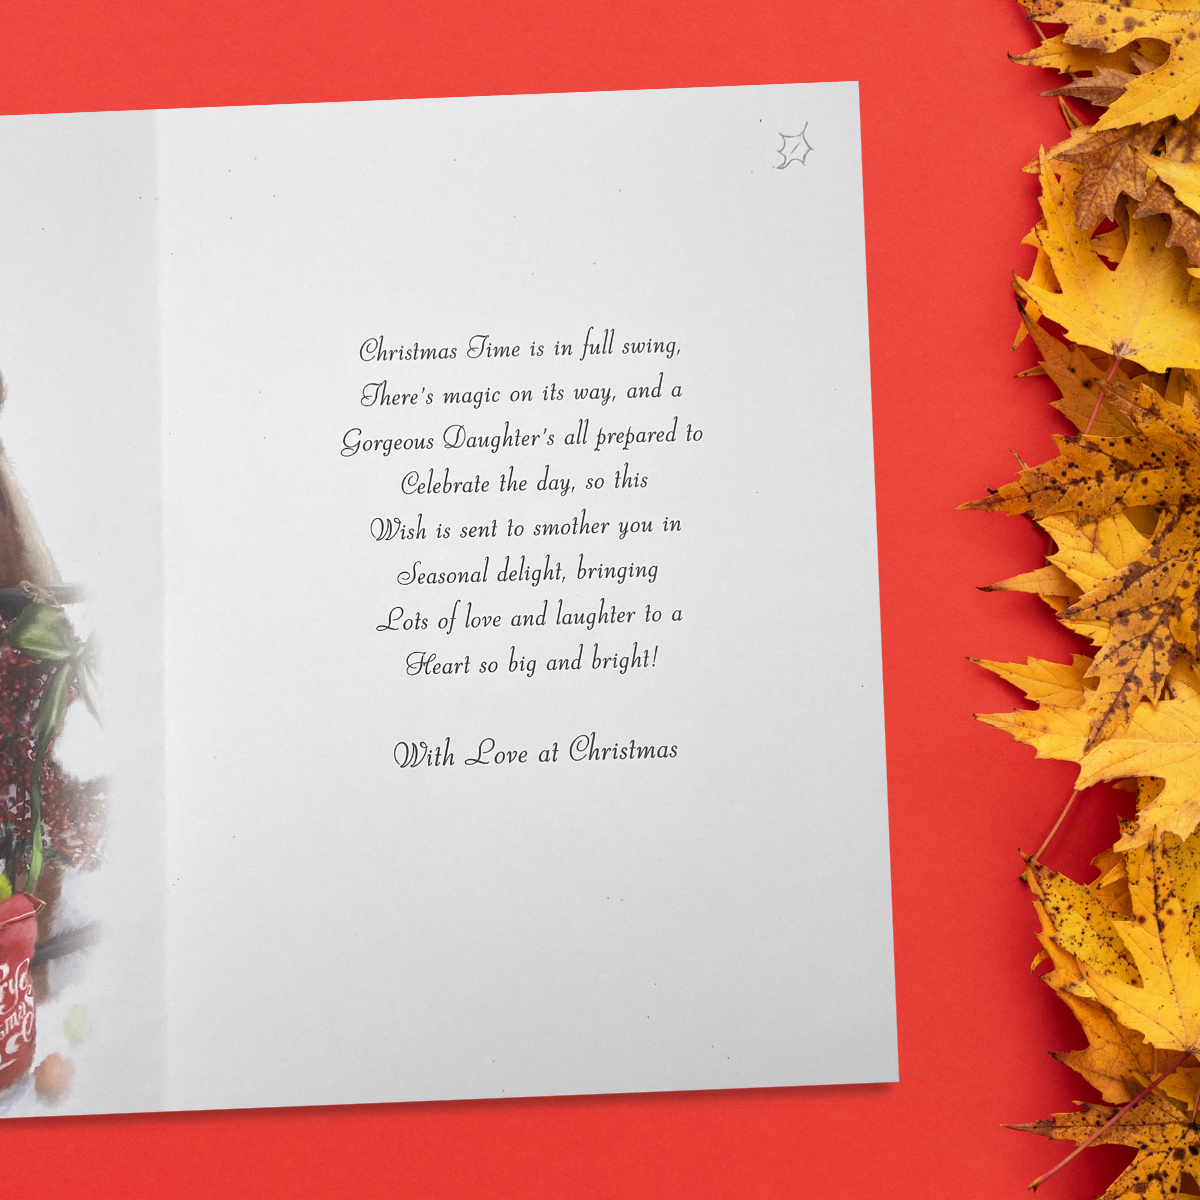 Christmas Time is in full swing,
There's magic on its way, and a
Gorgeous Daughter's all prepared to
Celebrate the day, so this
Wish is sent to smother you in
Seasonal delight, bringing
Lots of love and laughter to a
Heart so big and bright!
With Love at Christmas